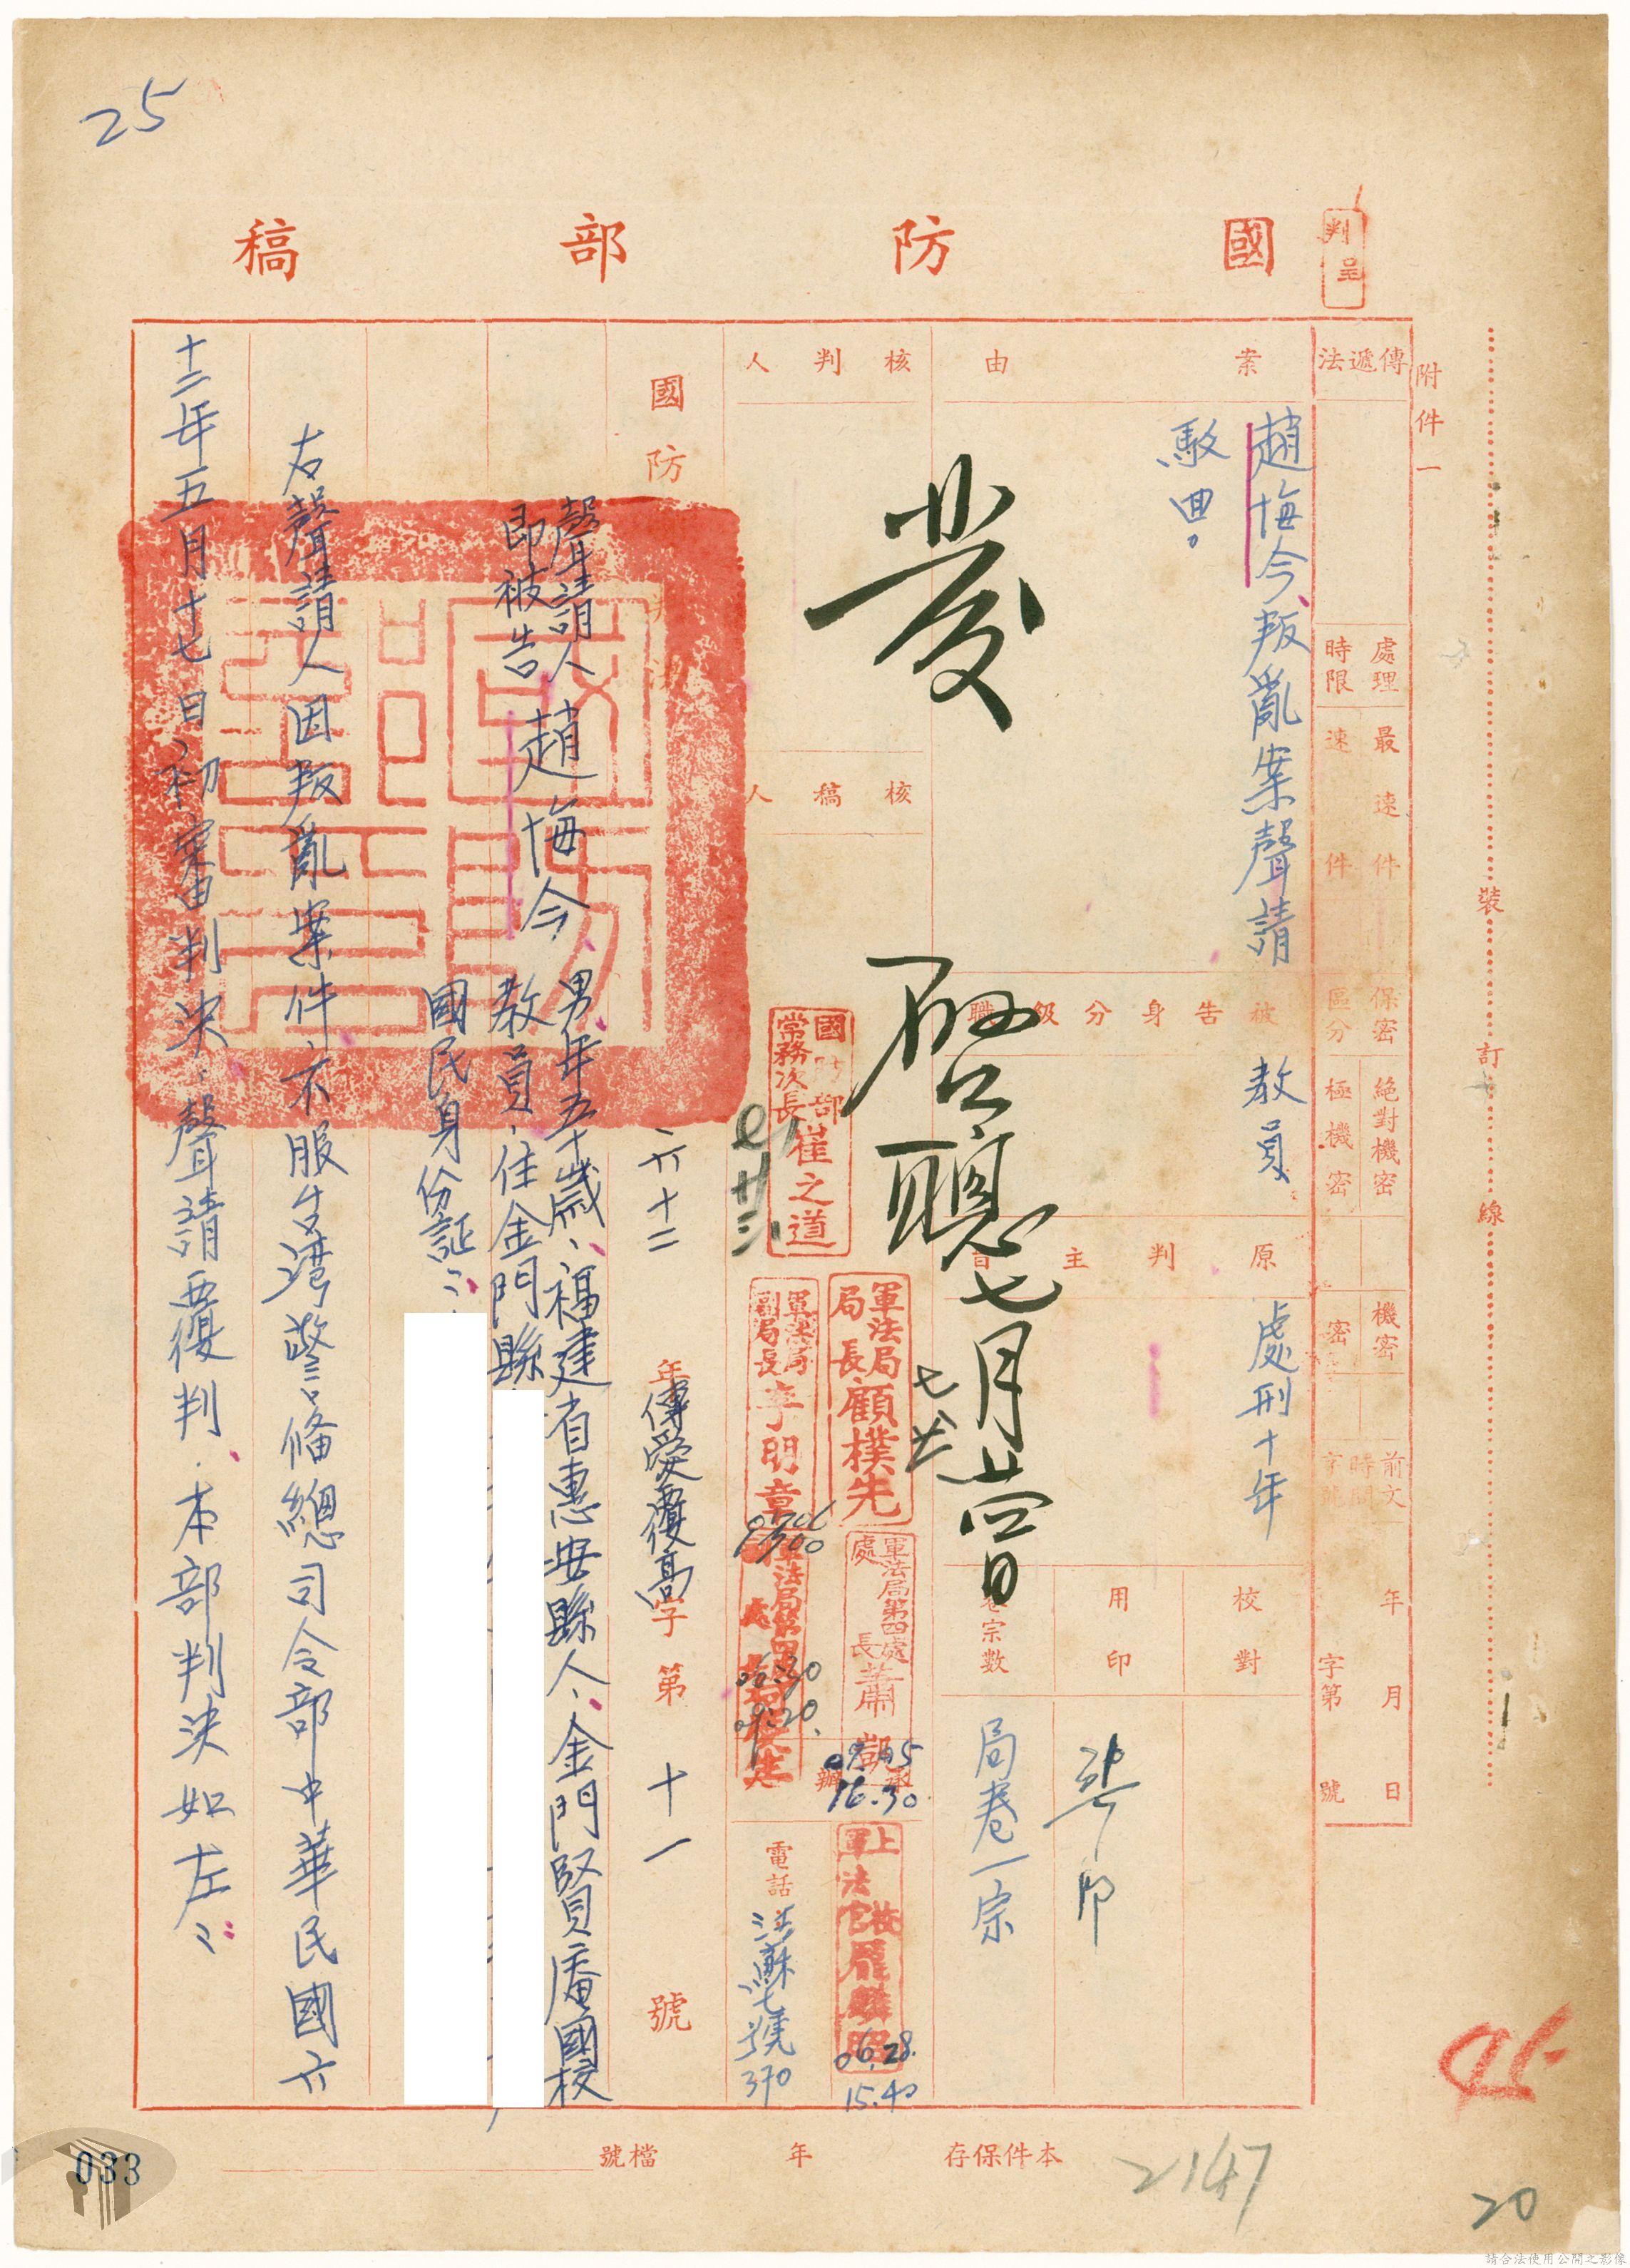 25
國防部稿
判呈
附件一
裝訂線
傳遞法
處理時限
最速件
速件
保密區分
絕對機密
極機密
機密
密
前文時間字號
年月日
字第號
案由
趙悔今叛亂案聲請
駁回。
被告身分級職
教員
原判主旨
處刑十年
校對
用印
卷宗數
局卷一宗
核判人
發
啓聰七月廿四日
核稿人
國防部常務次長崔之道
軍法局局長顧樸先
七、廿
軍法局副局長李明章
0706
0900
軍法局第四處處長蕭
06.30
09.20
承辦
09.05
16.30
上校軍法官
06.28.
15.40
電話
370
國防部判決
六十二年傳愛覆高字第十一號
聲請人
即被告
趙悔今
男年五十歲、福建省惠安縣人、金門賢庵國校
教員、住金門縣
國民身份証：
右聲請人因叛亂案件不服台灣警備總司令部中華民國六
十二年五月十七日初審判決、聲請覆判、本部判決如左：
本件保存年
檔號
2147
45
20
033
請合法使用公開之影像